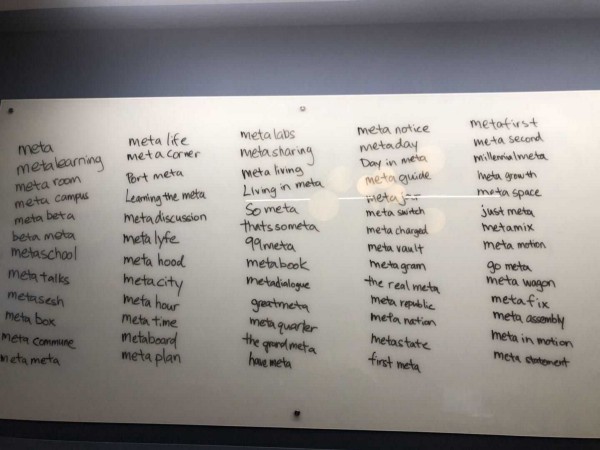 meta
metalearning
meta room
meta campus
meta beta
beta meta
metaschool
meta talks
metasesh
meta box
meta commune
meta meta
meta life
meta corner
Port meta
Learning the meta
meta discussion
meta lyfe
meta hood
metacity
meta hour
meta time
metaboard
meta plan
metalabs
metasharing
meta living
Living in meta
So meta
thats someta
99meta
metabook
metadialogue
greatmeta
meta quarter
the grand meta
have meta
meta notice
metaday
Day in meta
meta guide
meta switch
meta charged
meta vault
metagram
the real meta
meta republic
meta nation
metastate
first meta
metafirst
meta second
millennialmeta
meta growth
meta space
just meta
metamix
meta motion
go meta
meta wagon
meta fix
meta assembly
meta in motion
meta statement